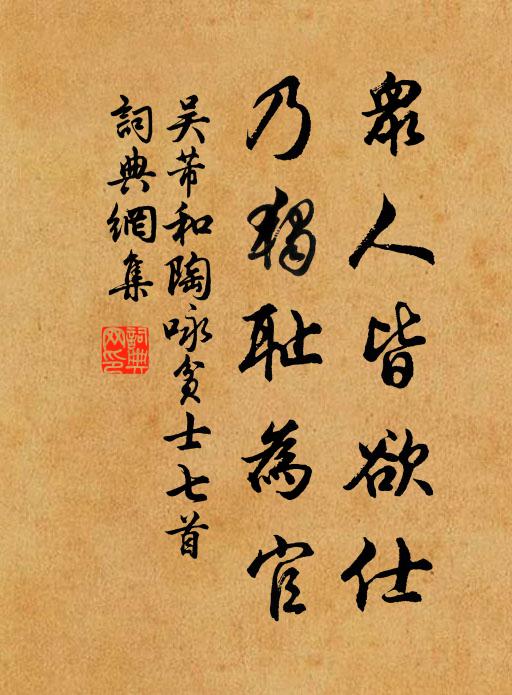 眾人皆欲仕
乃獨耻為官
吴芾和陶咏貧士七首
詞典網集
詞典网印